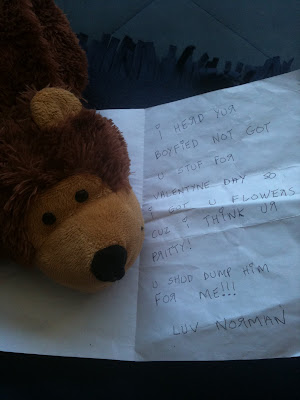 I HERD YUR
BOYFIED NOT GOT
U STUF FOR
VALENTYNE DAY SO
I GOT U FLOWERS
CUZ I THINK UR
PRITTY!
U SHUD DUMP HIM
FOR ME!!!
LUV NORMAN